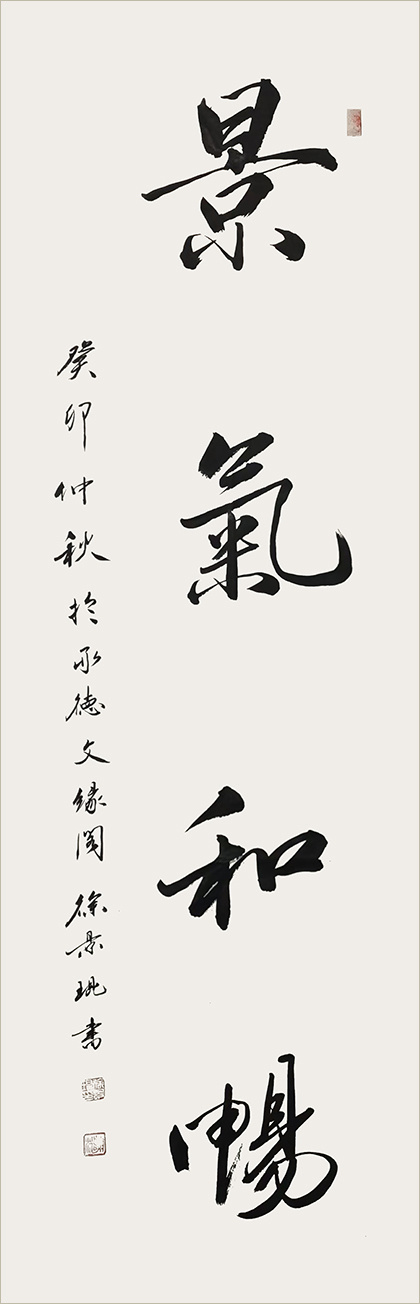 景氣和暢
癸卯仲秋於承德文緣閣徐景書